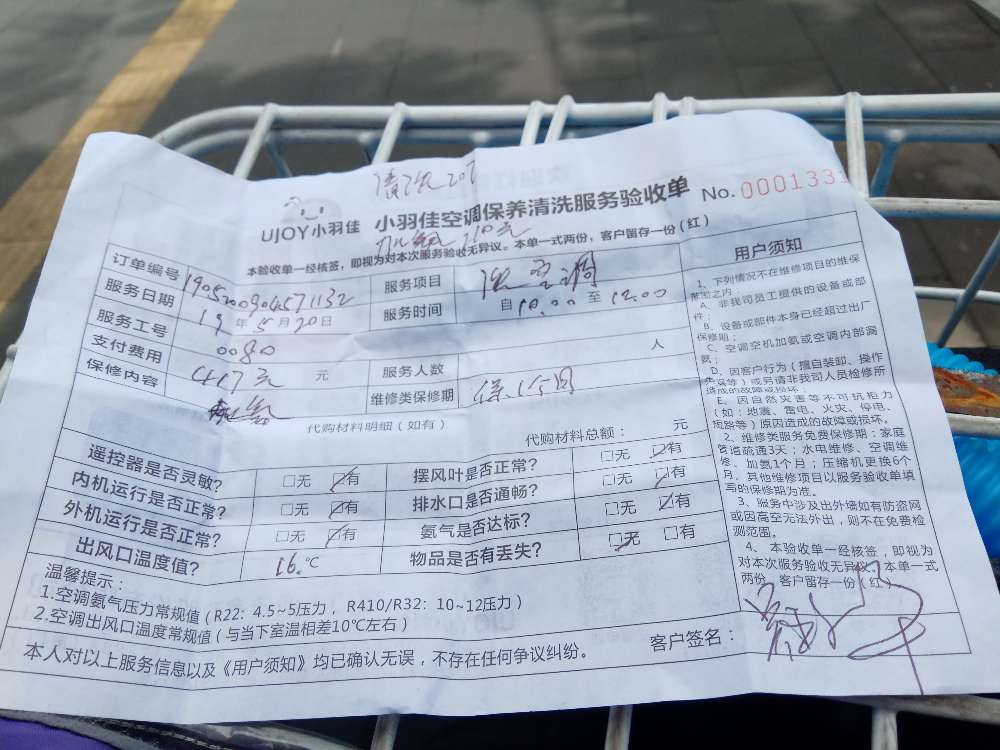 清洗207
UJOY小羽佳 小羽佳空调保养清洗服务验收单 No.000133
本验收单一经核签，即视为对本次服务验收无异议。本单一式两份，客户留存一份（红）
订单编号 服务项目 洗空调
服务日期 19年5月20日 服务时间 自10.00至12.00
服务工号 0080
支付费用 417元 元 服务人数 人
保修内容 维修类保修期 保1个月
代购材料明细（如有） 代购材料总额： 元
遥控器是否灵敏？ □无 ☑有 摆风叶是否正常？ □无 ☑有
内机运行是否正常？ □无 ☑有 排水口是否通畅？ □无 ☑有
外机运行是否正常？ □无 ☑有 氨气是否达标？ □无 ☑有
出风口温度值？ 16.℃ 物品是否有丢失？ ☑无 □有
温馨提示：
1.空调氨气压力常规值（R22：4.5~5压力，R410/R32：10~12压力）
2.空调出风口温度常规值（与当下室温相差10℃左右）
本人对以上服务信息以及《用户须知》均已确认无误，不存在任何争议纠纷。 客户签名：
用户须知
1、下列情况不在维修项目的维保
范围之内：
A、非我司员工提供的设备或部
件；
B、设备或部件本身已经超过出厂
保修期；
C、空调空机加氨或空调内部漏
氨；
D、因客户行为（擅自装卸、操作
失误等）或另请非我司人员检修所
造成的故障或损坏；
E、因自然灾害等不可抗拒力
（如：地震、雷电、火灾、停电、
短路等）原因造成的故障或损坏。
2、维修类服务免费保修期：家庭
管道疏通3天；水电维修、空调维
修、加氨1个月；压缩机更换6个
月。其他维修项目以服务验收单填
写的保修期为准。
3、服务中涉及出外墙如有防盗网
或因高空无法外出，则不在免费检
测范围。
4、本验收单一经核签，即视为
对本次服务验收无异议。本单一式
两份，客户留存一份（红）